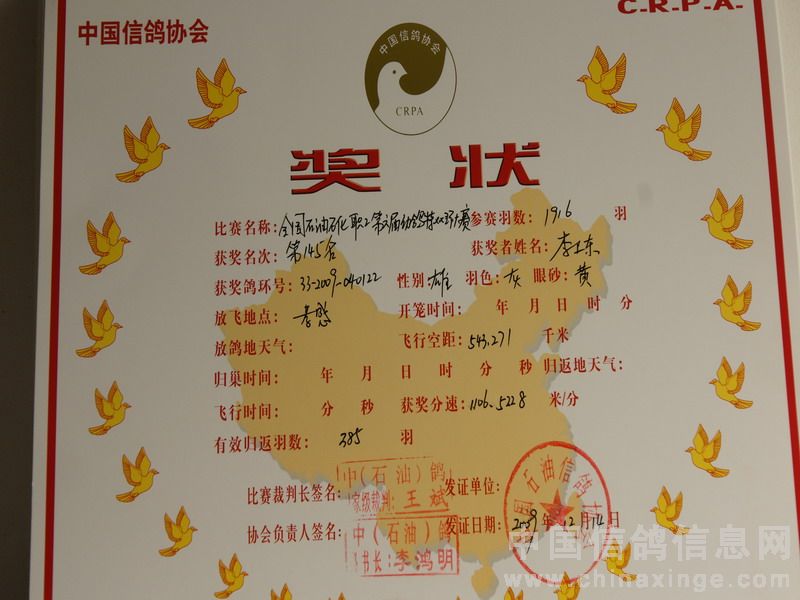 C-R-P-A-
中国信鸽协会
中国信鸽协会
CRPA
奖 状
比赛名称：全国石油石化职工第六届幼鸽特比环大赛 参赛羽数：1916 羽
获奖名次：第145名 获奖者姓名：李工东
获奖鸽环号：33-2009-040122 性别：雄 羽色：灰 眼砂：黄
放飞地点： 开笼时间： 年 月 日 时 分
放鸽地天气： 飞行空距：543.271 千米
归巢时间： 年 月 日 时 分 秒 归返地天气：
飞行时间： 分 秒 获奖分速：1106.5228 米/分
有效归返羽数：385 羽
中（石油）鸽
比赛裁判长签名： 家级裁判：王斌 发证单位：
国石油信鸽协
中（石油）鸽
协会负责人签名： 发证日期：2009年12月14日
书长：李鸿明
中国信鸽信息网
www.chinaxinge.com